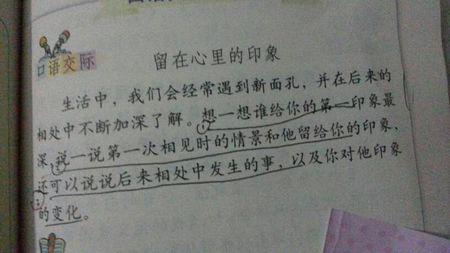 口语交际
留在心里的印象
生活中，我们会经常遇到新面孔，并在后来的
相处中不断加深了解。想一想谁给你的第一印象最
深，说一说第一次相见时的情景和他留给你的印象，
还可以说说后来相处中发生的事，以及你对他印象
的变化。